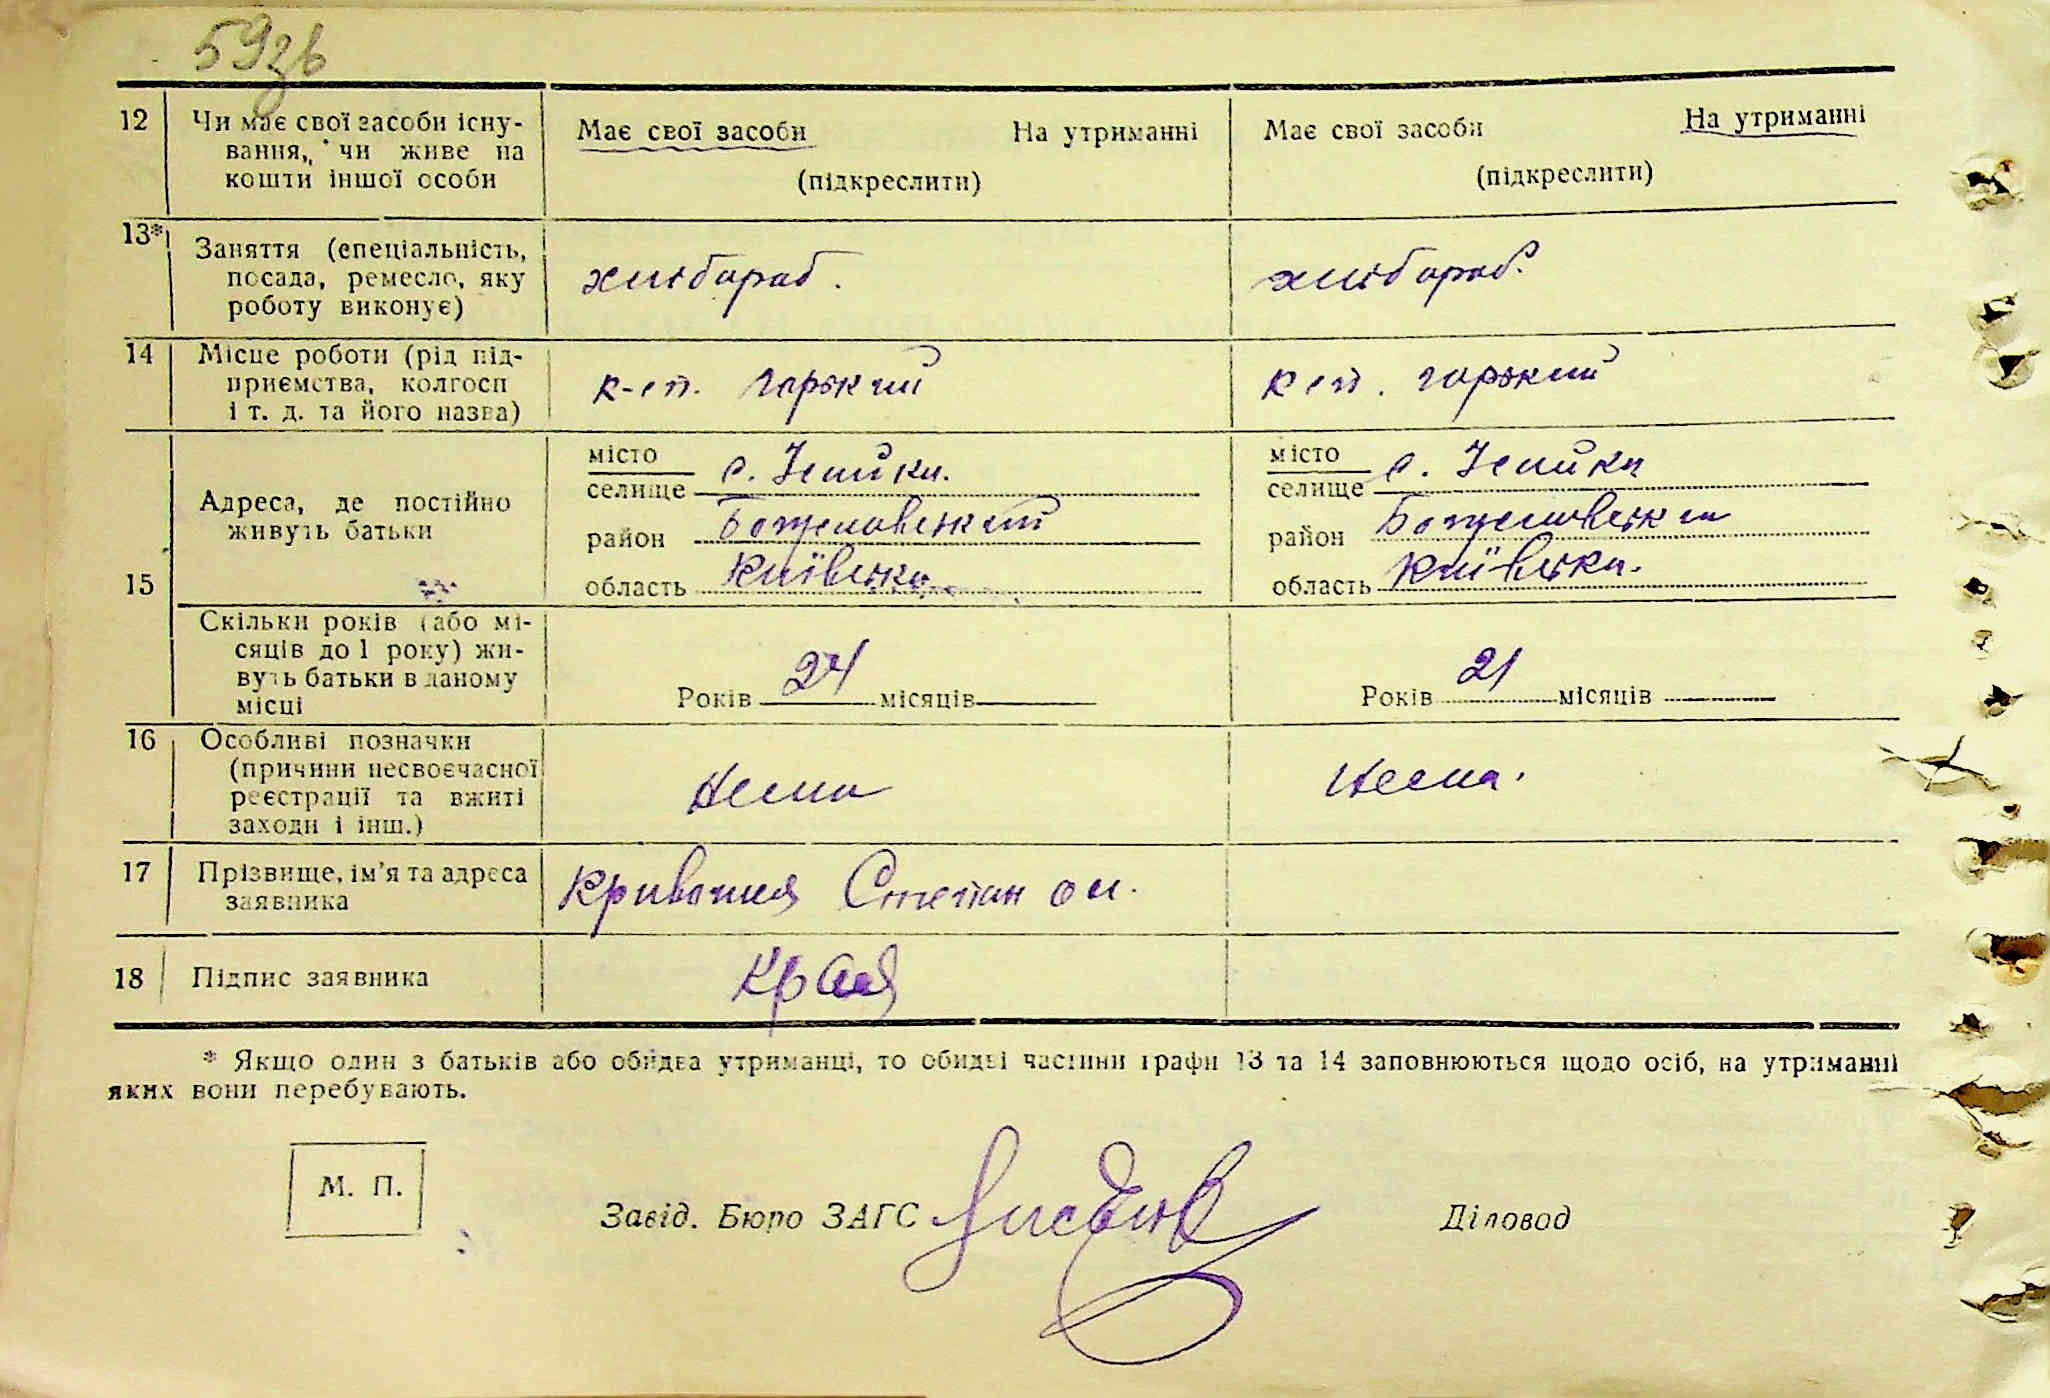 59зв
12 Чи має свої засоби існу- Має свої засоби На утриманні Має свої засоби На утриманні
вання, чи живе на
кошти іншої особи (підкреслити) (підкреслити)
13* Заняття (спеціальність,
посада, ремесло, яку хлібораб. хлібораб.
роботу виконує)
14 Місце роботи (рід під-
приємства, колгосп к-сп. горький ксп. горький
і т. д. та його назва)
15 Адреса, де постійно
живуть батьки
місто
селище с.
район
область Київська
місто
селище с.
район
область Київська.
Скільки років (або мі-
сяців до 1 року) жи-
вуть батьки в даному
місці
Років 24 місяців
Років 21 місяців
16 Особливі позначки
(причини несвоєчасної
реєстрації та вжиті
заходи і інш.)
Нема Нема.
17 Прізвище, ім'я та адреса
заявника
Степан
18 Підпис заявника
* Якщо один з батьків або обидва утриманці, то обидві частини графи 13 та 14 заповнюються щодо осіб, на утриманні
яких вони перебувають.
М. П.
Завід. Бюро ЗАГС Діловод